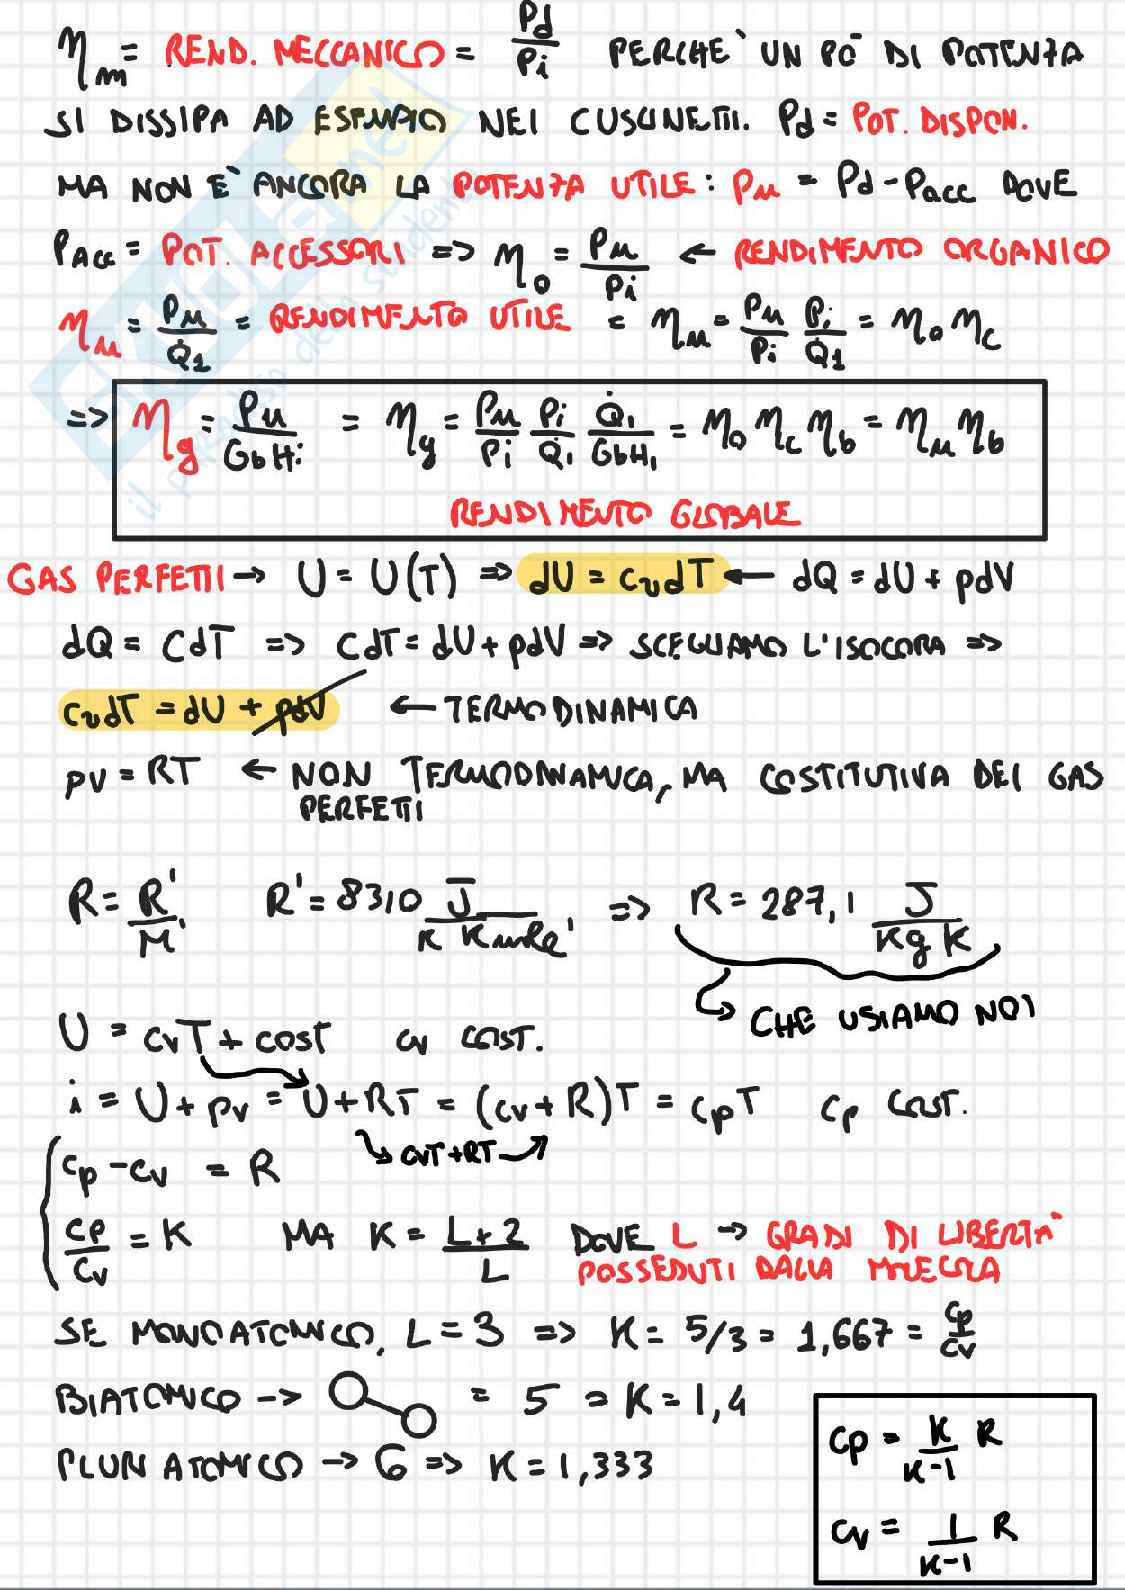 ηm = REND. MECCANICO = Pd/Pi PERCHE` UN PO` DI POTENZA
SI DISSIPA AD ESEMPIO NEI CUSCINETTI. Pd = POT. DISPON.
MA NON E` ANCORA LA POTENZA UTILE: Pu = Pd - Pacc DOVE
PAcc = POT. ACCESSORI => ηo = Pu/Pi ← RENDIMENTO ORGANICO
ηu = Pu/Q̇1 = RENDIMENTO UTILE = ηu = Pu/Pi Pi/Q̇1 = ηo ηc
=> ηg = Pu/GbHi = ηg = Pu/Pi Pi/Q̇1 Q̇1/GbHi = ηo ηc ηb = ηu ηb
RENDIMENTO GLOBALE
GAS PERFETTI → U = U(T) => dU = cvdT ← dQ = dU + pdV
dQ = CdT => CdT = dU + pdV => SCEGLIAMO L'ISOCORA =>
cvdT = dU + pdV ← TERMODINAMICA
pv = RT ← NON TERMODINAMICA, MA COSTITUTIVA DEI GAS
PERFETTI
R = R'/M R' = 8310 J/K Kmole => R = 287,1 J/Kg K
CHE USIAMO NOI
U = cvT + cost cv COST.
i = U + pv = U + RT = (cv + R)T = cpT cp COST.
cvT + RT
cp - cv = R
cp/cv = K MA K = L+2/L DOVE L → GRADI DI LIBERTA`
POSSEDUTI DALLA MOLECOLA
SE MONOATOMICO, L = 3 => K = 5/3 = 1,667 = cp/cv
BIATOMICO → = 5 = K = 1,4
PLURIATOMICO → 6 => K = 1,333
cp = K/K-1 R
cv = 1/K-1 R